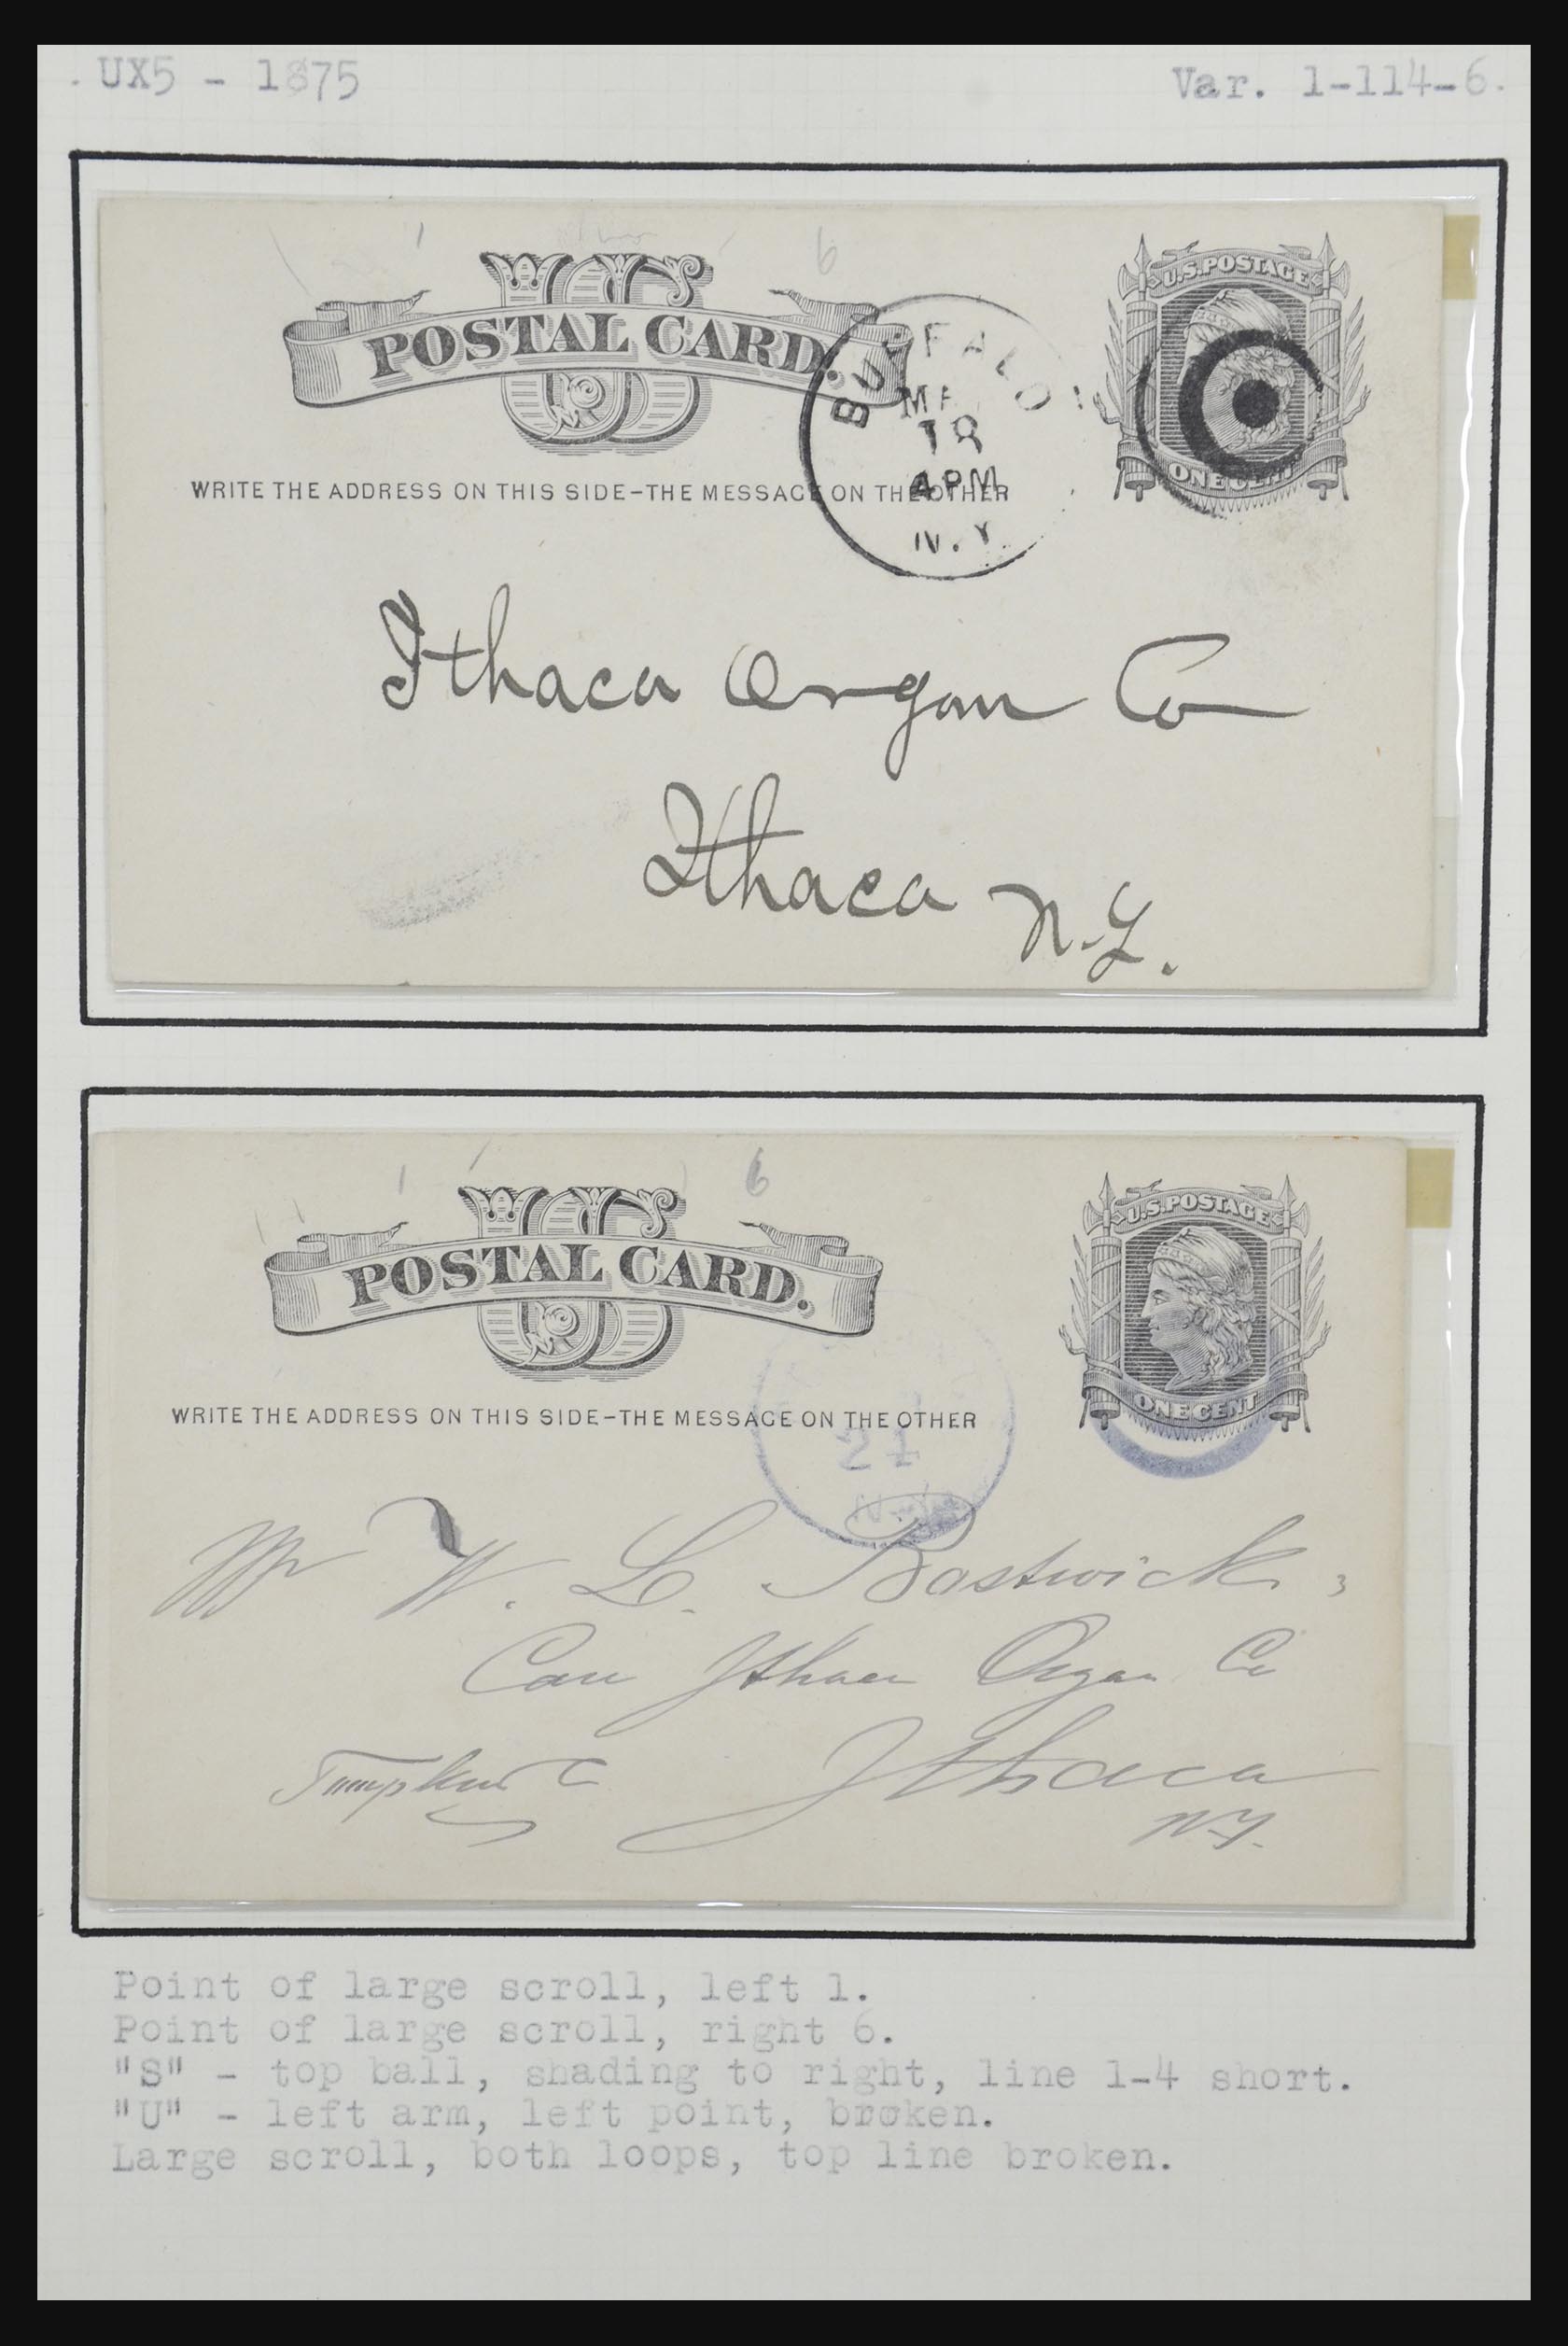 . UX5 - 1875
Var. 1-114-6.
1 6
U.S. POSTAGE
US
POSTAL CARD.
BUFFALO
18
4 PM
N.Y.
ONE CENT
WRITE THE ADDRESS ON THIS SIDE-THE MESSAGE ON THE OTHER
Ithaca Organ Co
Ithaca N.Y.
1 6
U.S. POSTAGE
US
POSTAL CARD.
ONE CENT
WRITE THE ADDRESS ON THIS SIDE-THE MESSAGE ON THE OTHER
21
N.Y.
Mr W. L. Bostwick,
Care Ithaca Organ Co
Ithaca
Tompkins Co
N.Y.
Point of large scroll, left 1.
Point of large scroll, right 6.
"S" - top ball, shading to right, line 1-4 short.
"U" - left arm, left point, broken.
Large scroll, both loops, top line broken.